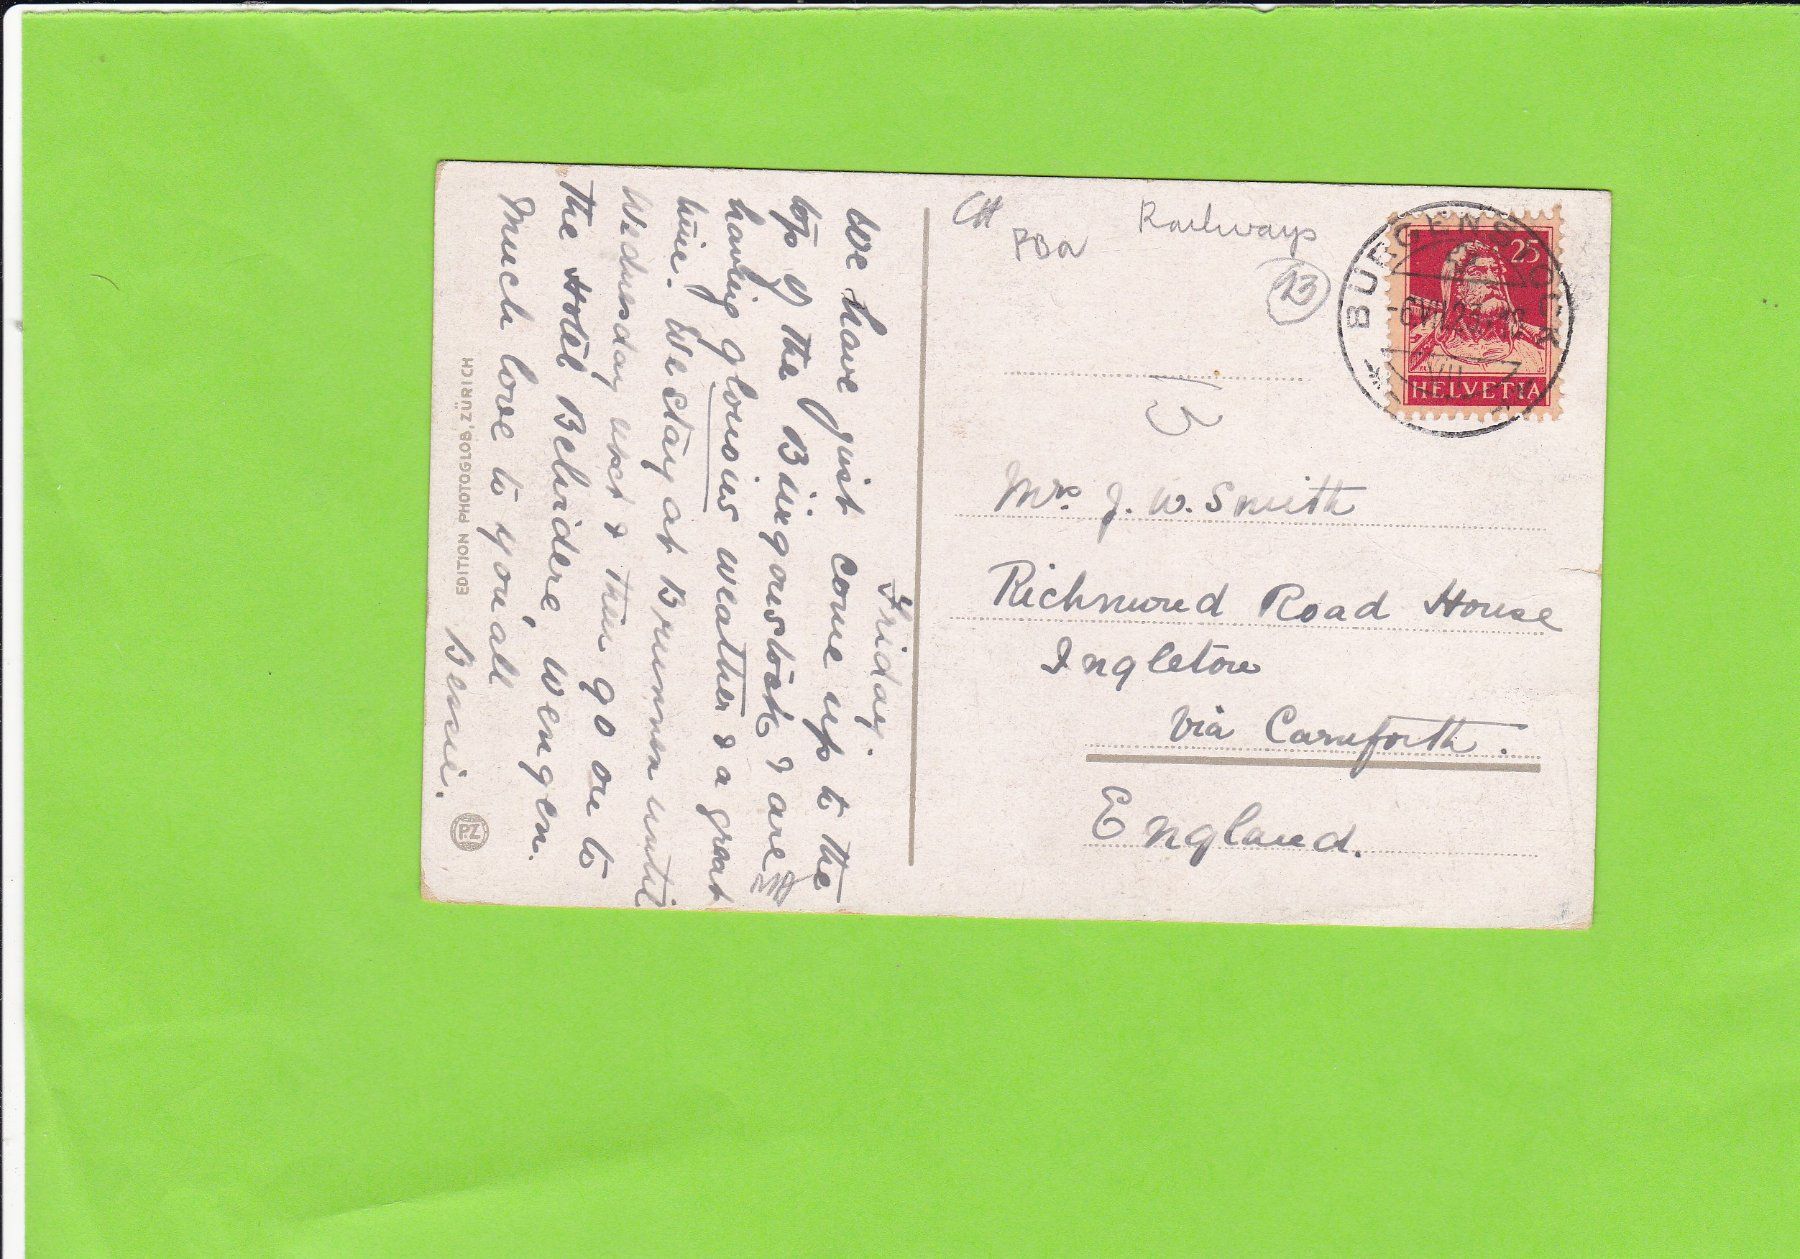 Friday.
We have just come up to the
top of the Bürgenstock & are
having glorious weather & a great
time. We stay at Brunnen until
Wednesday next & then go on to
the Hotel Belvidere, Wengen.
Much love to you all
Bessie.
EDITION PHOTOGLOB, ZÜRICH
P.Z
CH
PBa
Railways
13
BÜRGENSTOCK
25
HELVETIA
Mrs J. W. Smith
Richmond Road House
Ingleton
Via Carnforth.
England.